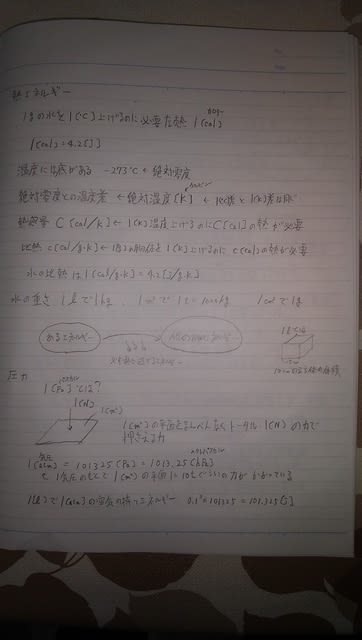 熱エネルギー
1gの水を1[℃]上げるのに必要な熱 1[cal]
カロリー
1[cal]=4.2[J]
温度には底がある -273℃ ← 絶対零度
ケルビン
絶対零度との温度差 ← 絶対温度[K] ← 1℃差と1[K]差は同じ
熱容量 C[cal/K] ← 1[K]温度上げるのにC[cal]の熱が必要
比熱 c[cal/g·K] ← 1gの物体を1[K]上げるのにc[cal]の熱が必要
水の比熱は1[cal/g·K]=4.2[J/g·K]
水の重さ 1lで1kg、1m³で1t=1000kg 1cm³で1g
あるエネルギー
他の エネルギー
1lとは
10cmの立方体の体積
圧力
パスカル
1[Pa]とは?
1[N]
1[m²]
1[m²]の平面をまんべんなくトータル1[N]の力で
押さえる力
気圧
ヘクトパスカル
1[atm]=101325[Pa]=1013.25[hPa]
1気圧のもとで1[m²]の平面に10tぐらいの力がかかっている
1[l]で1[atm]の空気の持つエネルギー 0.1³×101325=101.325[J]